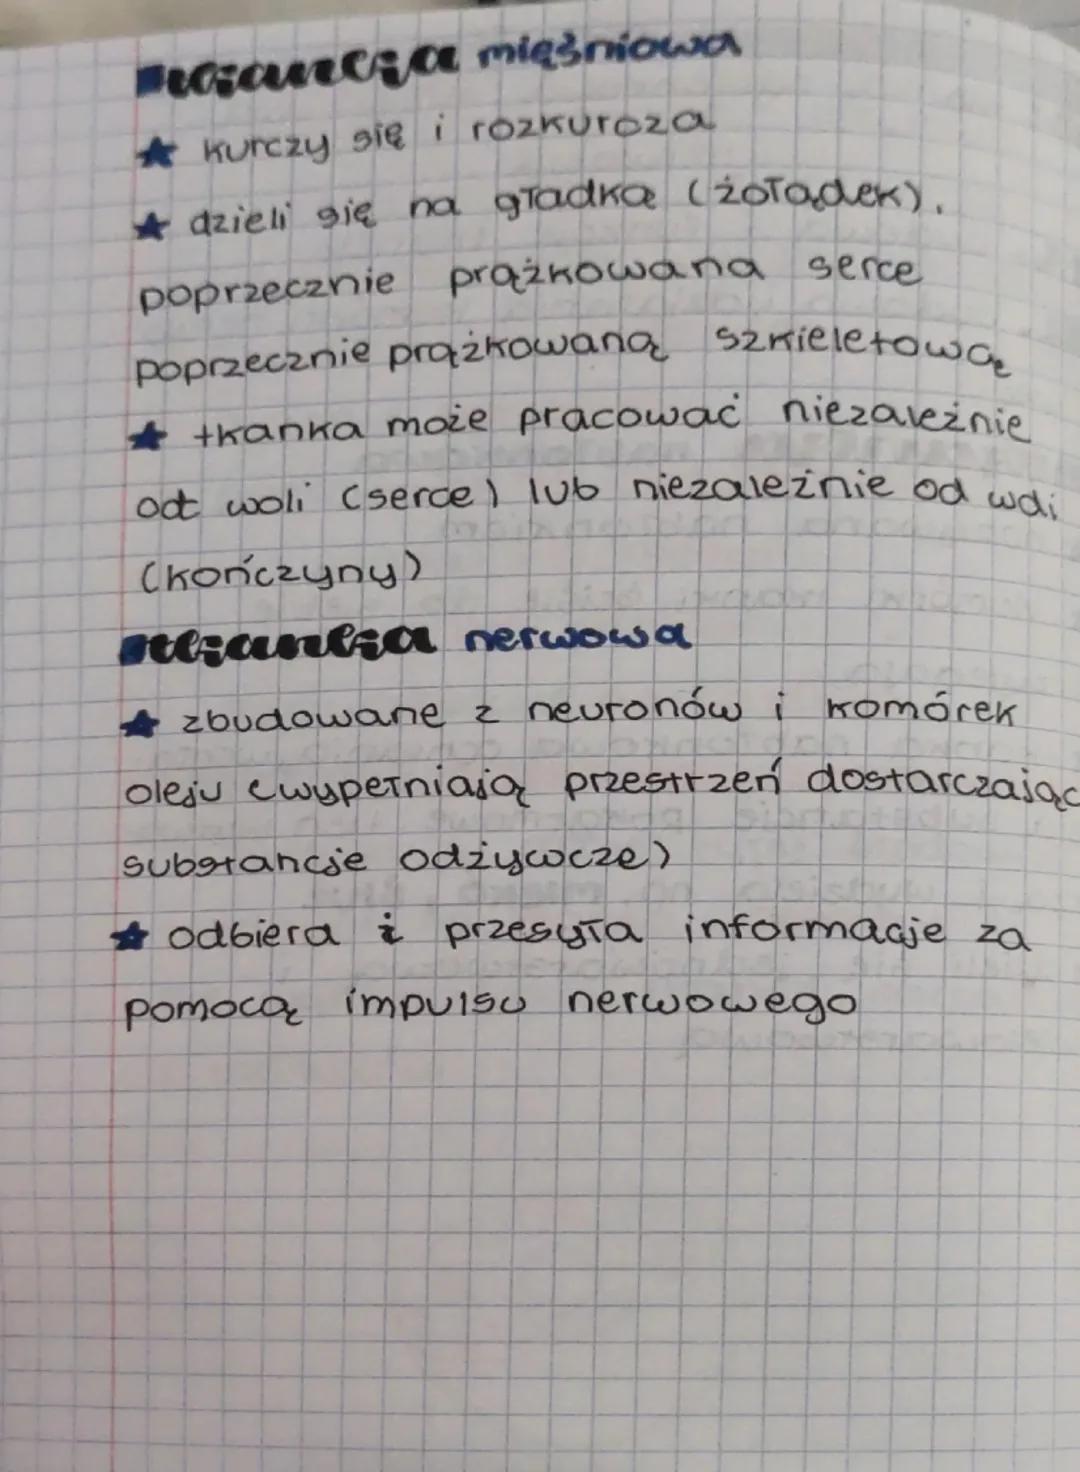 mięśniowa
★ kurczy się i rozkurcza
★ dzieli się na gładką (żołądek),
poprzecznie prążkowana serce
poprzecznie prążkowaną szkieletową
★ tkanka może pracować niezależnie
od woli (serce) lub niezależnie od woli
(kończyny)
nerwowa
★ zbudowane z neuronów i komórek
oleju (wypełniają przestrzeń dostarczając
substancje odżywcze)
★ odbiera i przesyła informacje za
pomocą impulsu nerwowego